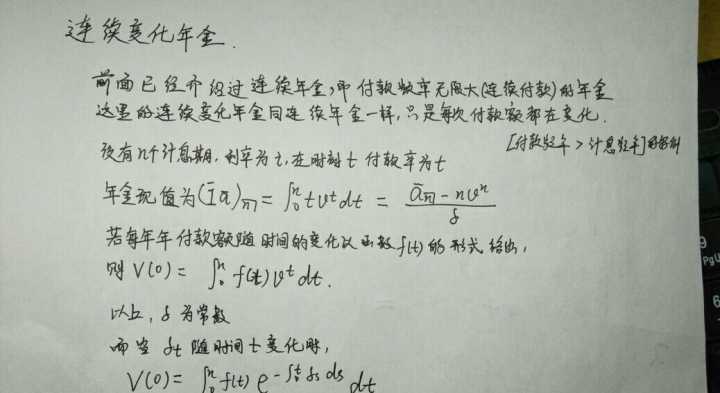 连续变化年金.
前面已经介绍过连续年金,即付款频率无限大(连续付款)的年金
这里的连续变化年金同连续年金一样,只是每次付款额都在变化.
[付款频率 > 计息频率]的特例
设有n个计息期,利率为i,在时刻t付款率为t
年金现值为(Īā)n̅| = ∫₀ⁿ t vᵗ dt = (ān̅| - nvⁿ)/δ
若每年年付款额随时间的变化以函数f(t)的形式给出,
则 V(0) = ∫₀ⁿ f(t) vᵗ dt.
以上, δ为常数
而当 δt 随时间t变化时,
V(0) = ∫₀ⁿ f(t) e^(-∫₀ᵗ δs ds) dt